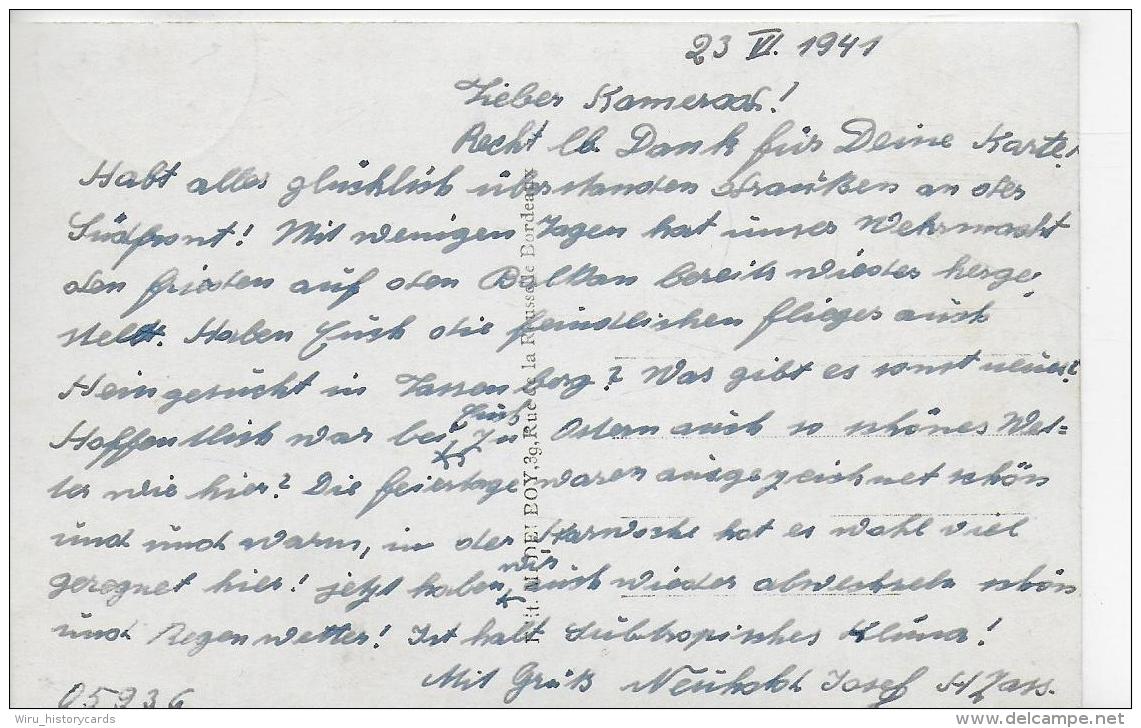 23 VI. 1941
Lieber Kamerad!
Recht lb. Dank für Deine Karte!
Habt alles glücklich überstanden draußen an der
Südfront! Mit wenigen Tagen hat unser Wehrmacht
den frieden auf den Balkan bereits wieder herge-
stellt. Haben Euch die feindlichen flieger auch
Heimgesucht in ? Was gibt es sonst neues?
Hoffentlich war bei Euch zu Ostern auch so schönes Wet=
ter wie hier? Die feiertage waren ausgezeichnet schön
und und warm, in der Karwoche hat es wohl viel
geregnet hier! jetzt haben wir auch wieder abwechseln schön
und Regenwetter! Ist halt Subtropisches Klima!
Mit Gruß Neuhold Josef
05936
DELBOY, 39, Rue de la Rousselle Bordeaux
Wiru_historycards
delcampe.net